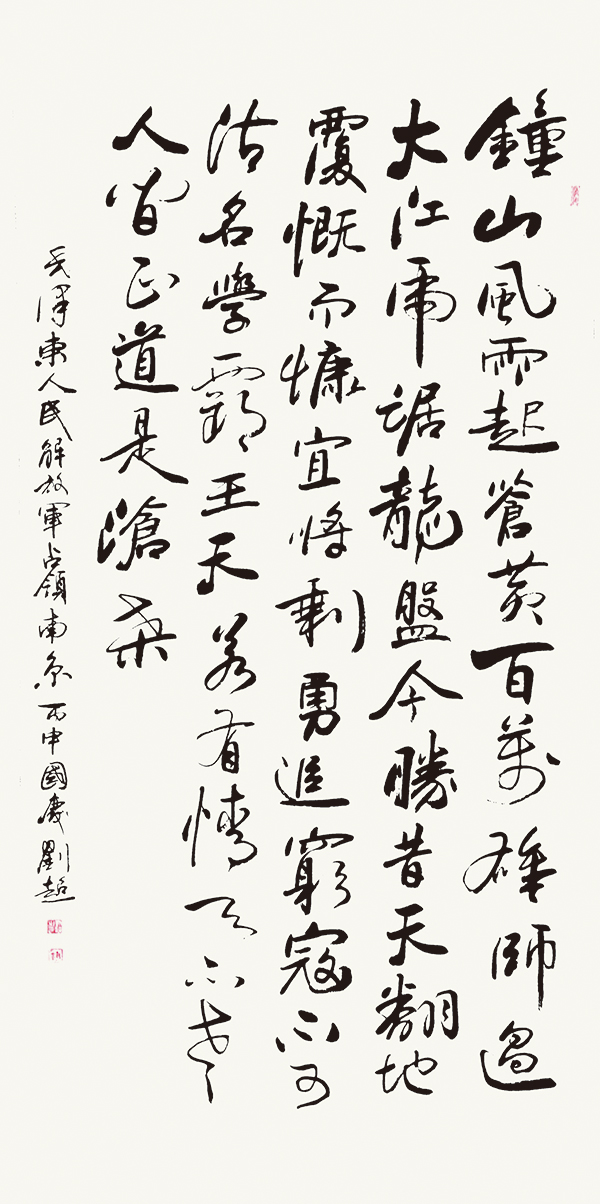 鐘山風雨起蒼黃百萬雄師過
大江虎踞龍盤今勝昔天翻地
覆慨而慷宜將剩勇追窮寇不可
沽名學霸王天若有情天亦老
人間正道是滄桑
毛澤東人民解放軍占領南京丙申國慶劉超